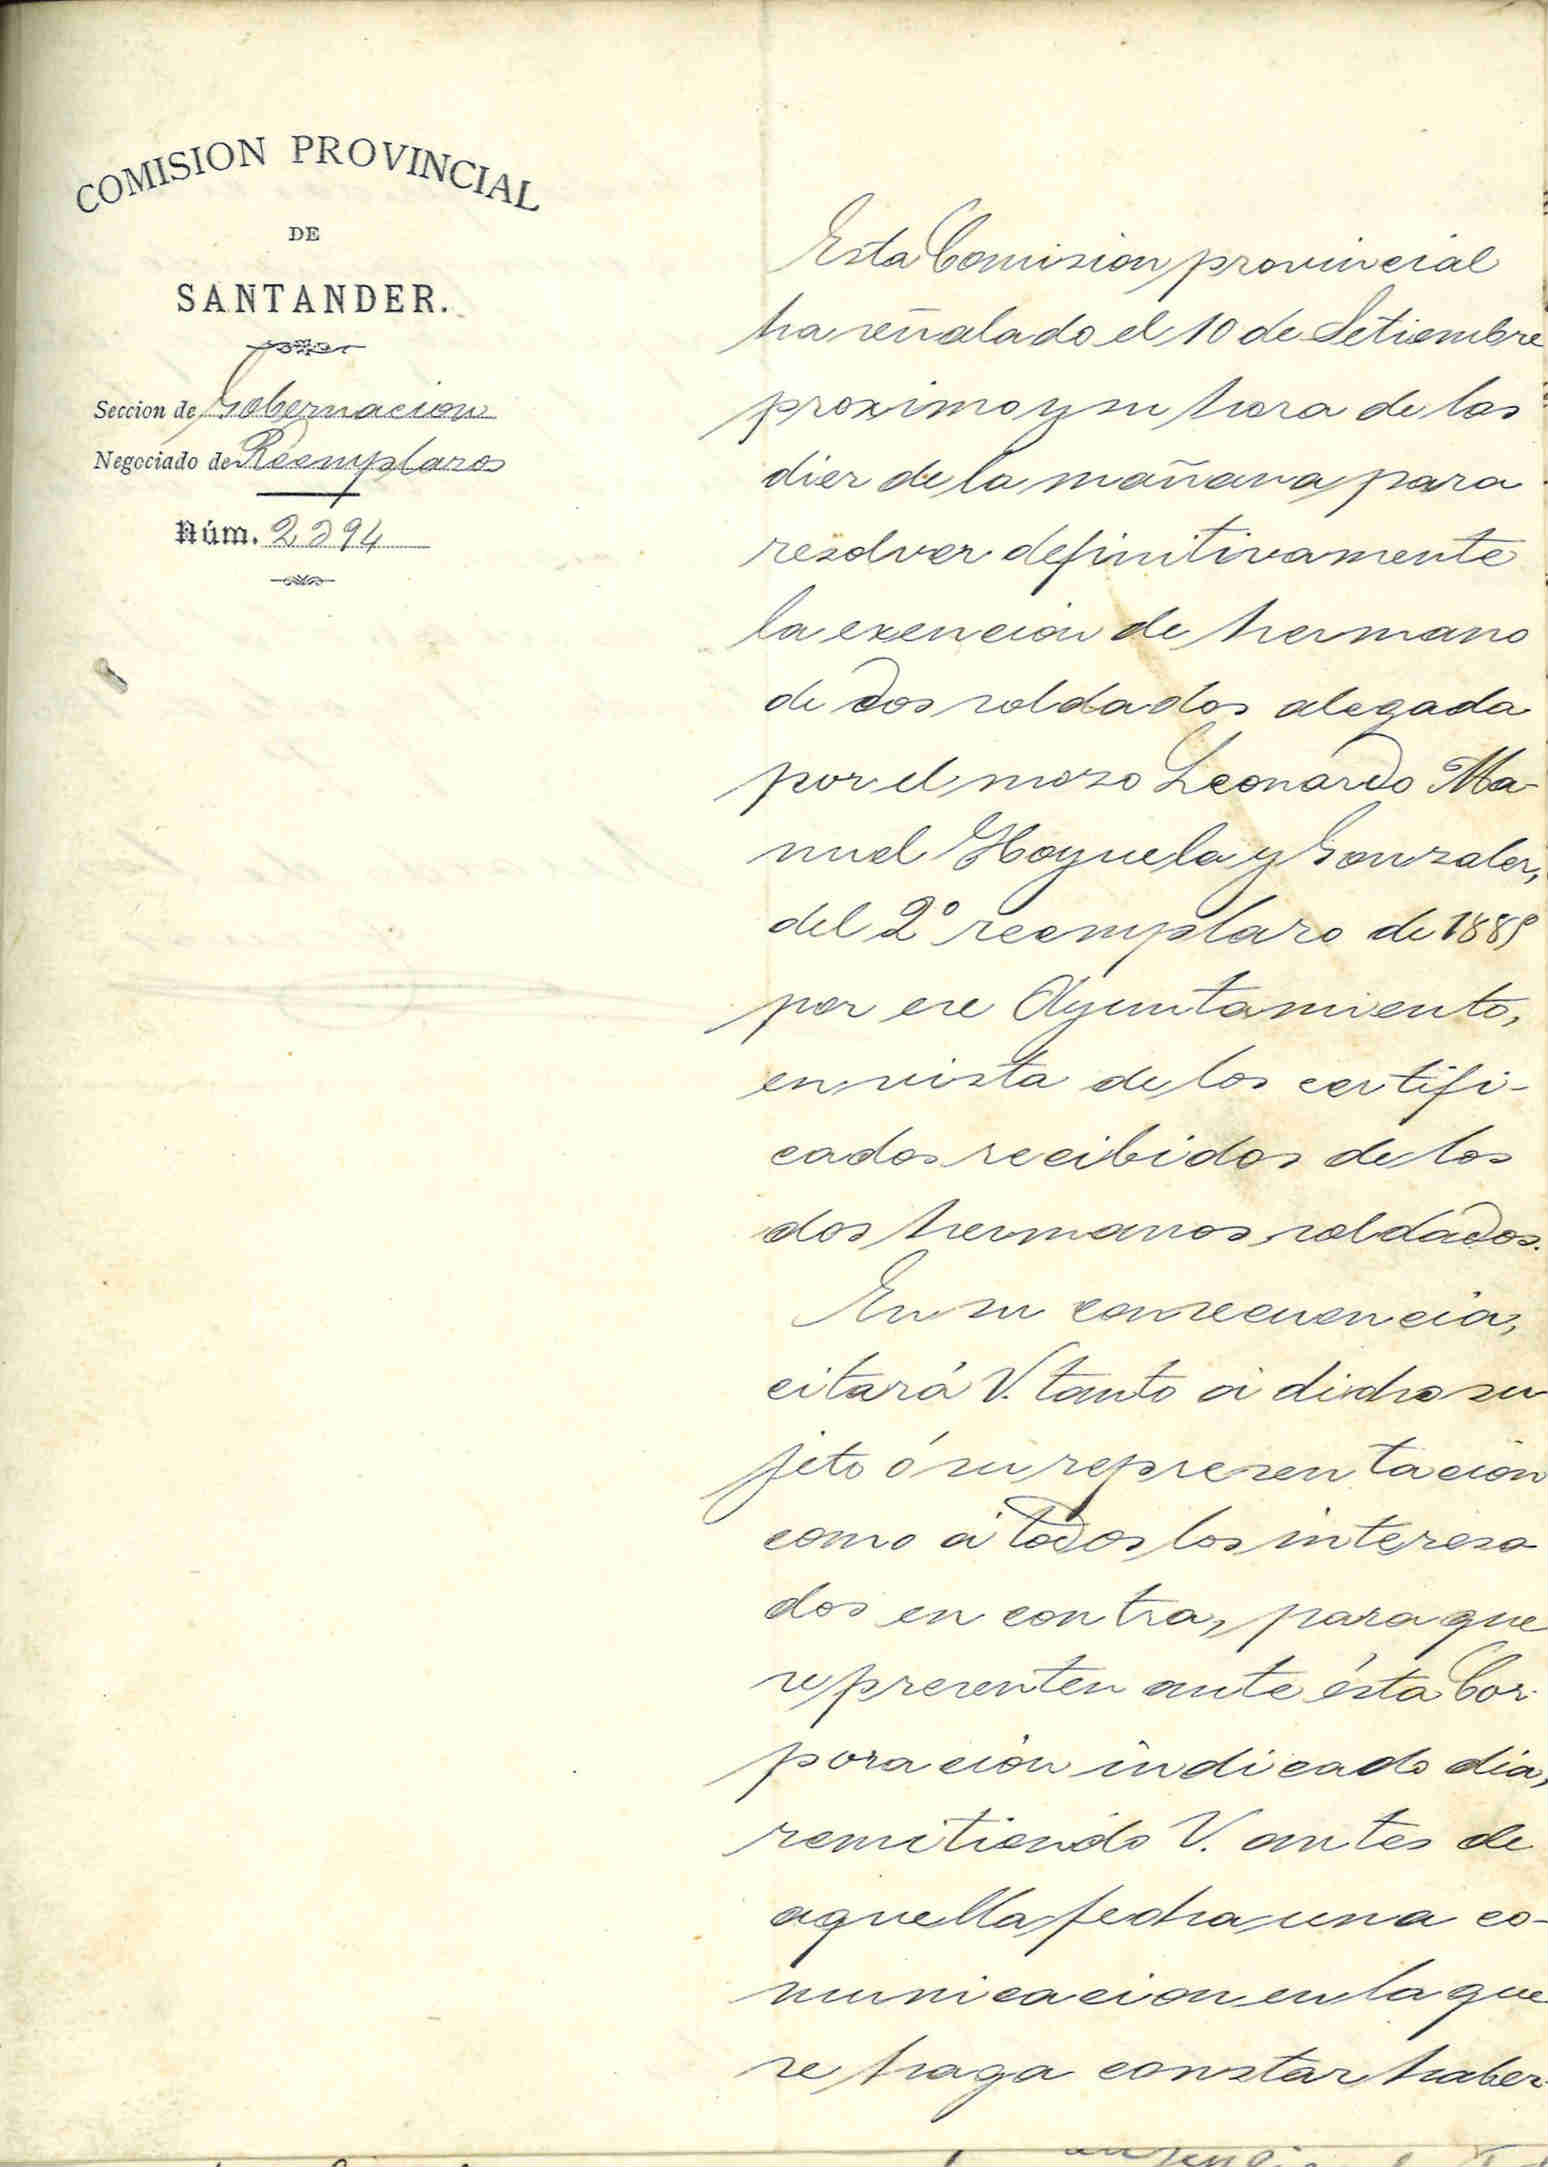 COMISION PROVINCIAL
DE
SANTANDER.
Seccion de Gobernacion
Negociado de Reemplazos
Núm. 2294
Esta Comision provincial
ha señalado el 10 de Setiembre
proximo y su hora de las
diez de la mañana para
resolver definitivamente
la exencion de hermano
de dos soldados alegada
por el mozo Leonardo Ma-
nuel Hoyuela y Gonzalez,
del 2º reemplazo de 1885
por ese Ayuntamiento,
en vista de los certifi-
cados recibidos de los
dos hermanos soldados.
En su consecuencia,
citará V. tanto á dicho su
jeto ó su representacion
como á todos los interesa
dos en contra, para que
se presenten ante ésta Cor-
poracion indicado dia,
remitiendo V. antes de
aquella fecha una co-
municacion en la que
se haga constar haber